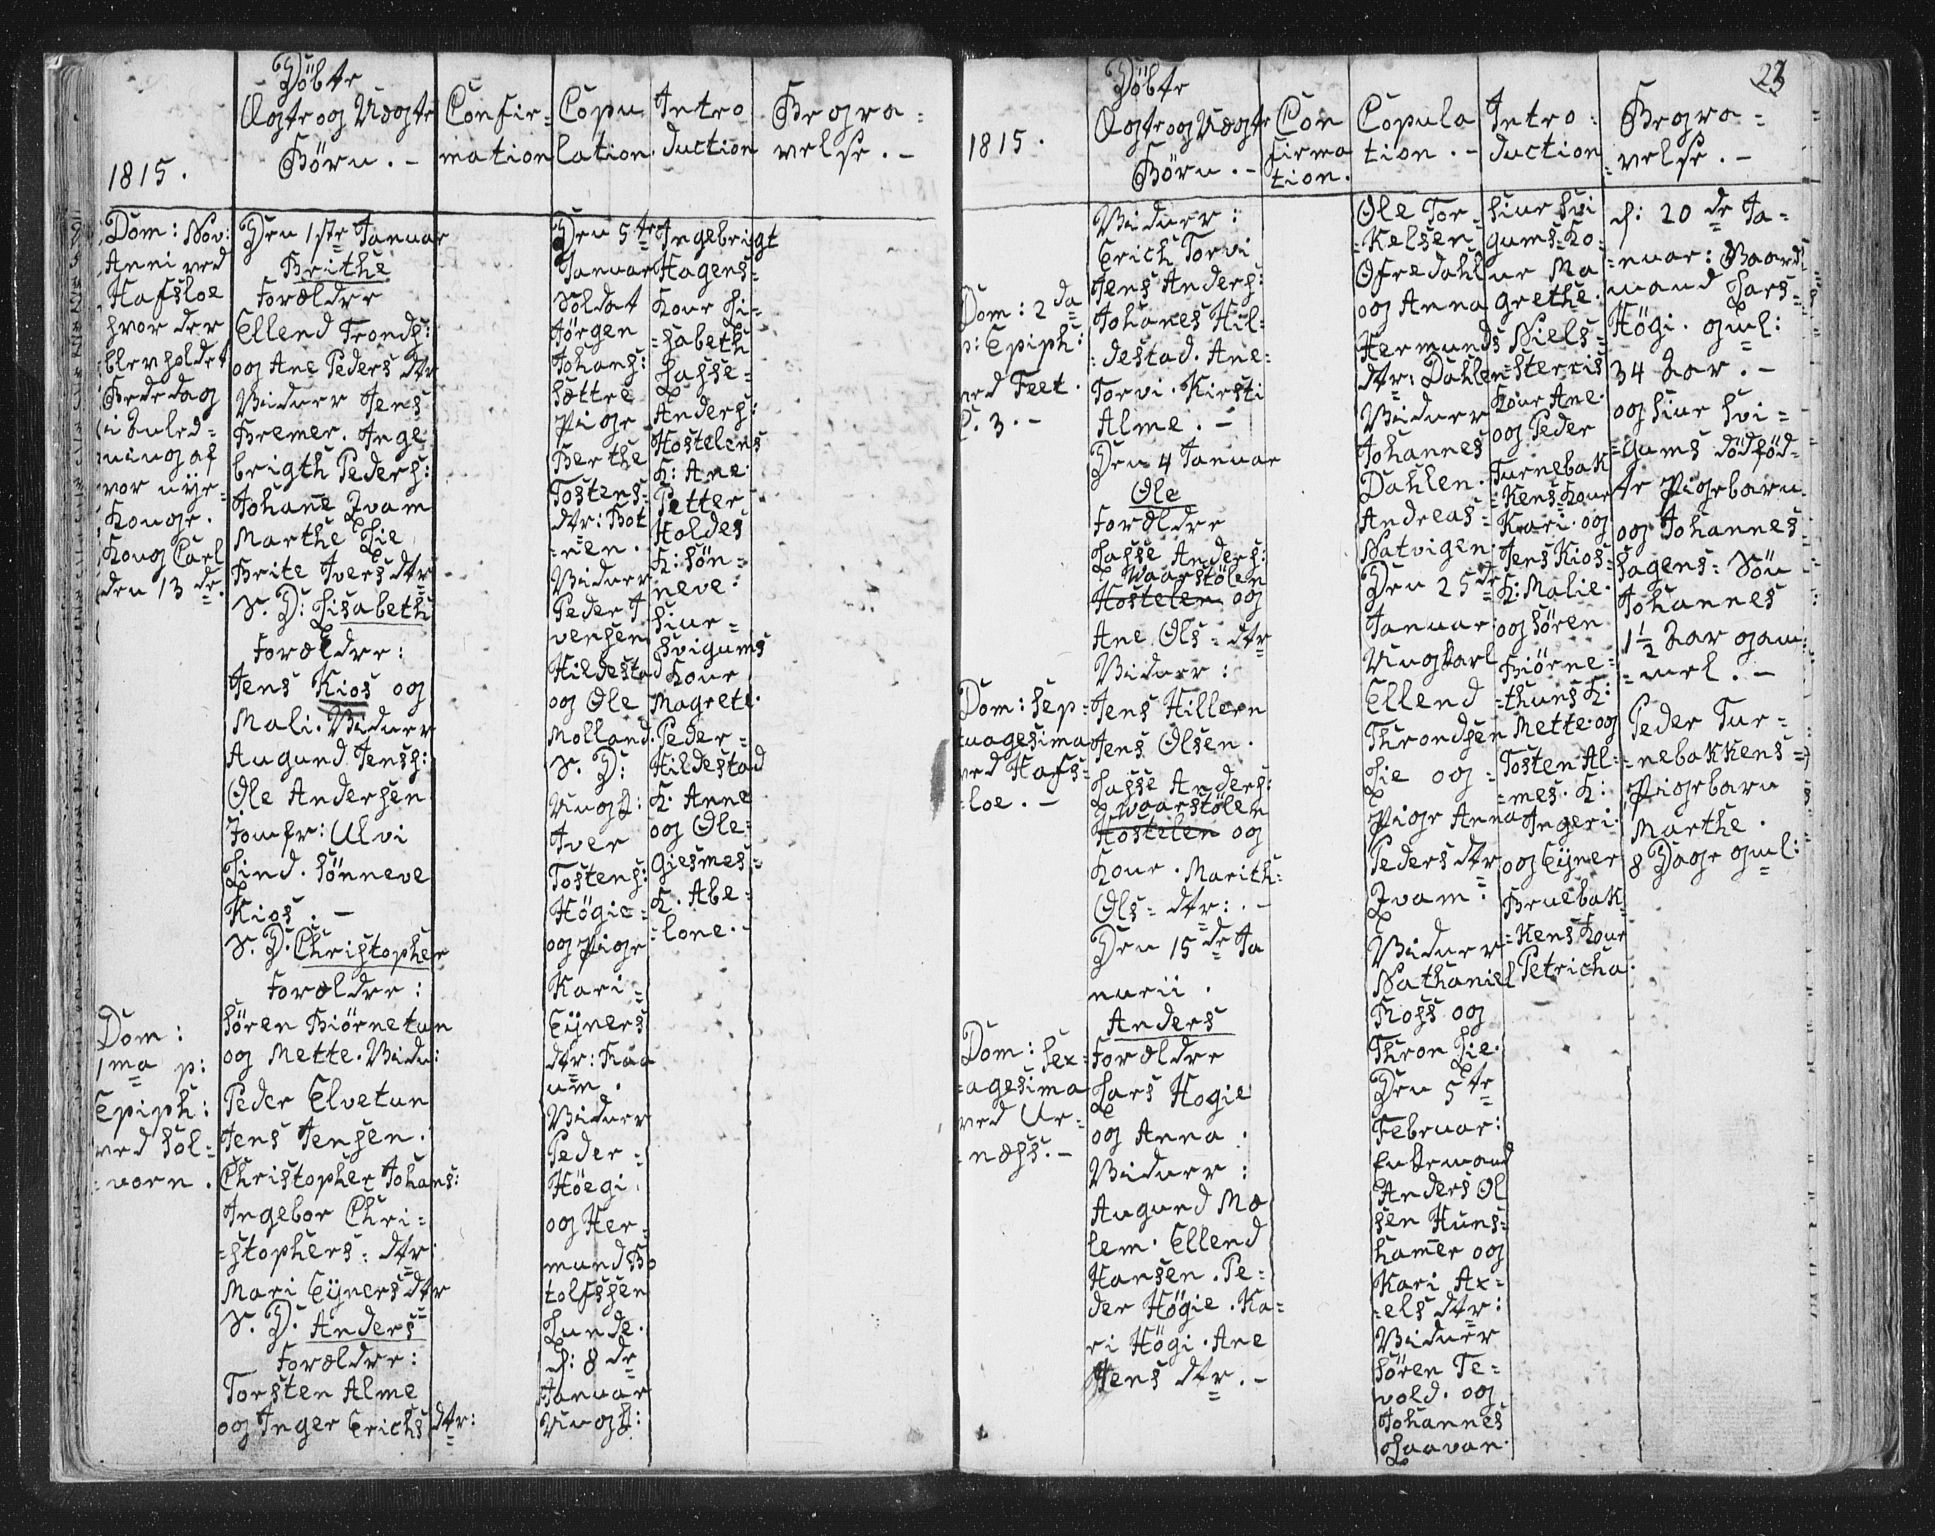 1815.
Dom: Nov:
Anni ved
Hafsloe
hvor der
blev holdet
Bededag
i Anled-
ning af
vor nye
Konge.
Kong Carl
den 13 de.
Dom:
1ma p:
Epiph:
ved Sol-
vorn.
Döbte
Ægte og Uægte
Börn. -
Den 1ste Januar
Brithe
Forældre
Ellend Tronds:
og Ane Peders dtr
Viduer Jens
Bremer. Inge
brigth Peders:
Johane Qvam
Marthe Lie
Brite Ivers dtr
S. D: Lisabeth
Forældre:
Jens Kios og
Mali. Viduer
Augund Jenss:
Ole Andersen
Jomfr: Ulvi
Lind. Sönneve
Kios. -
S. D. Christopher
Forældre:
Sören Biörnetun
og Mette. Vidu:
Peder Elvetun
Jens Jensen.
Christopher Johans:
Ingebor Chri-
-stophers: dtr:
Mari Eyners dtr
S. D. Anders
Forældre:
Torsten Alme
og Inger Erichs dtr:
Confir-
mation
Copu
lation.
Den 5te
Januar
Soldat
Jörgen
Johans:
Sættre
Pige
Berthe
Tostens-
dtr: Bot
-nen.
Viduer
Peder I
versen
Hildestad
og Ole
Molland.
S. D:
Ungk:
Iver
Tostens:
Högie-
og Pige
Kari-
Eyners
dtr: Raa
um.
Viduer
Peder-
Höegi
og Her-
mund Bo
tolfssen
Lunde.
d: 8 de
Januar
Ungk:
Intro
duction
Ingebrigt
Hagens-
Kone Li-
-sabeth
Lasse-
Anders:
Hostelens
K: Ane
Petter
Holdes
K: Sön-
neve:
Siur-
Svigums
Kone
Magrete.
Peder-
Hildestad
K. Anne
og Ole-
Giesmes-
K. Abe-
-lone.-
Begra-
velse. -
1815.
Dom: 2da
p: Epiph:
ved Feet.
C. 3. -
Dom: Sep-
tuagesima
ved Hafs-
-loe. -
Dom: Sex-
-agesima
ved Ur-
-næss. -
Döbte
Ægte og Uægte
Börn. -
Viduer:
Erich Torvi
Jens Anders:
Johanes Hil-
-destad. Ane-
Torvi. Kirsti
Alme. -
Den 4 Januar
Ole
Forældre
Lasse Anders:
Qvaarstölen
Hostelen og
Ane Ols- dtr
Viduer:
Jens Hillern
Jens Olsen.
Lasse Anders:
Qvaarstölen
Hostelen og
Kone. Marith-
Ols- dtr: -
Den 15de Ja
nurii.
Anders
Forældre
Lars Hogie
og Anna.
Viduer:
Augund Mo
lem. Ellend
Hansen. Pe-
der Högie. Ka-
ri Högi. Ane
Jens dtr. -
Con
firma
tion.
Copula
tion. -
Ole Tor-
-kelsen
Ofredahl
og Anna
Hermunds
dtr: Dahlen
Viduer
Johannes
Dahlen.
Andreas-
Natvigen
Den 25de
Januar
Ungkarl
Ellend
Throndsen
Lie og-
Pige Anna
Peders dtr
Qvam:
Viduer
Nathaniel
Ross og
Thron Lie.
Den 5te
Februar:
Enkemand
Anders Ol
sen Huns-
hamer og
Kari Ax-
-els dtr:
Viduer
Sören Te-
vold. og
Johannes
Laavan.
Intro-
duction
Siur Svi
gums Ko-
ne Ma
grethe.
Niels-
-sterris
Kone Ane.
og Peder
Turnebak
-kens Kone
Kari. og
Jens Kios-
K: Malie.
og Sören
Biörne-
-tuns K:
Mette. og
Tosten Al-
-mes. K:
Ingeri.
og Eyner
Bruebak-
-kens Kone
Petricha.
23
Begra-
velse. -
d: 20 de Ja-
-nuar: Baards
mand Lars-
Högi. gml:
34 Aar. -
og Siur Svi-
-gums dödföd-
te Pigebarn.
og Johannes-
Hagens- Sön
Johannes
1 1/2 Aar gam-
-mel. -
Peder Tur-
-nebakkens-
Pigebarn
Marthe.
8 Dage gml: